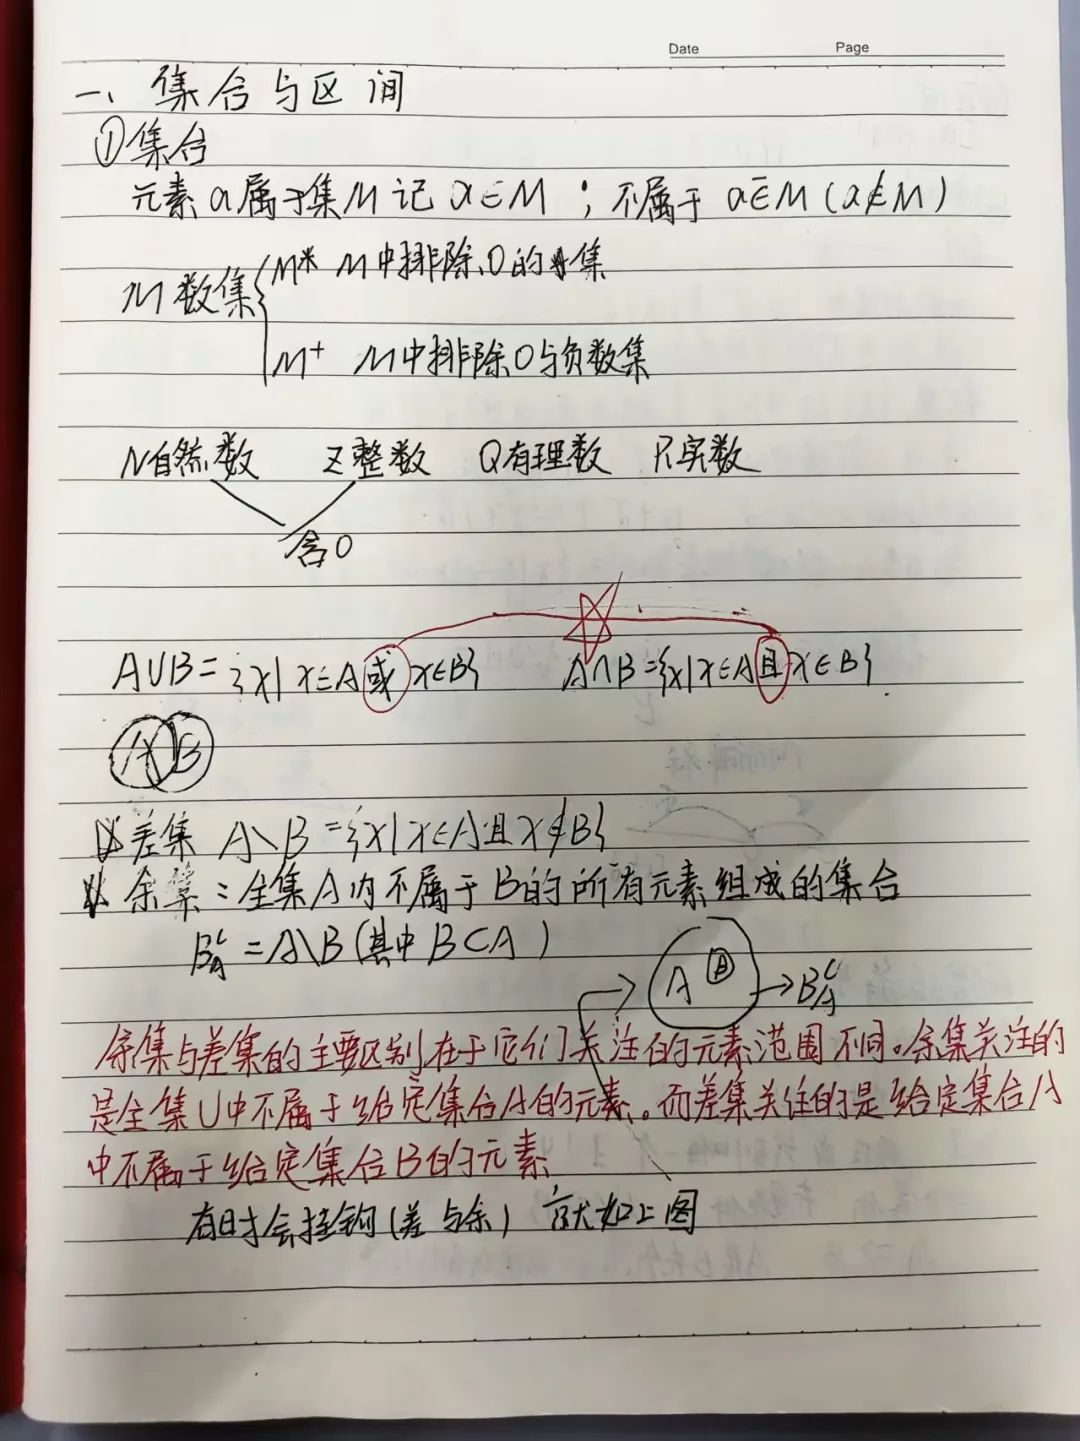 Date Page
一、集合与区间
①集合
元素a属于集M记a∈M；不属于a∈̄M(a∉M)
M数集{M* M中排除0的集
M⁺ M中排除0与负数集
N自然数 Z整数 Q有理数 R实数
含0
A∪B={x|x∈A或x∈B} A∩B={x|x∈A且x∈B}
A B
差集 A\B={x|x∈A且x∉B}
余集：全集A内不属于B的所有元素组成的集合
B_A^C=A\B(其中B⊂A)
A B → B_A^C
余集与差集的主要区别在于它们关注的元素范围不同。余集关注的
是全集U中不属于给定集合A的元素。而差集关注的是给定集合A
中不属于给定集合B的元素
有时会挂钩(差与余) 就如上图